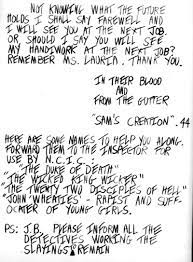 NOT KNOWING WHAT THE FUTURE
HOLDS I SHALL SAY FAREWELL AND
I WILL SEE YOU AT THE NEXT JOB.
OR, SHOULD I SAY YOU WILL SEE
MY HANDIWORK AT THE NEXT JOB?
REMEMBER MS. LAURIA. THANK YOU.
IN THEIR BLOOD
AND
FROM THE GUTTER
"SAM'S CREATION" .44
HERE ARE SOME NAMES TO HELP YOU ALONG.
FORWARD THEM TO THE INSPECTOR FOR
USE BY N.C.I.C:
"THE DUKE OF DEATH"
"THE WICKED KING WICKER"
"THE TWENTY TWO DISCIPLES OF HELL"
"JOHN 'WHEATIES' - RAPIST AND SUFF-
OCATER OF YOUNG GIRLS.
PS: J.B. PLEASE INFORM ALL THE
DETECTIVES WORKING THE
SLAYINGS REMAIN